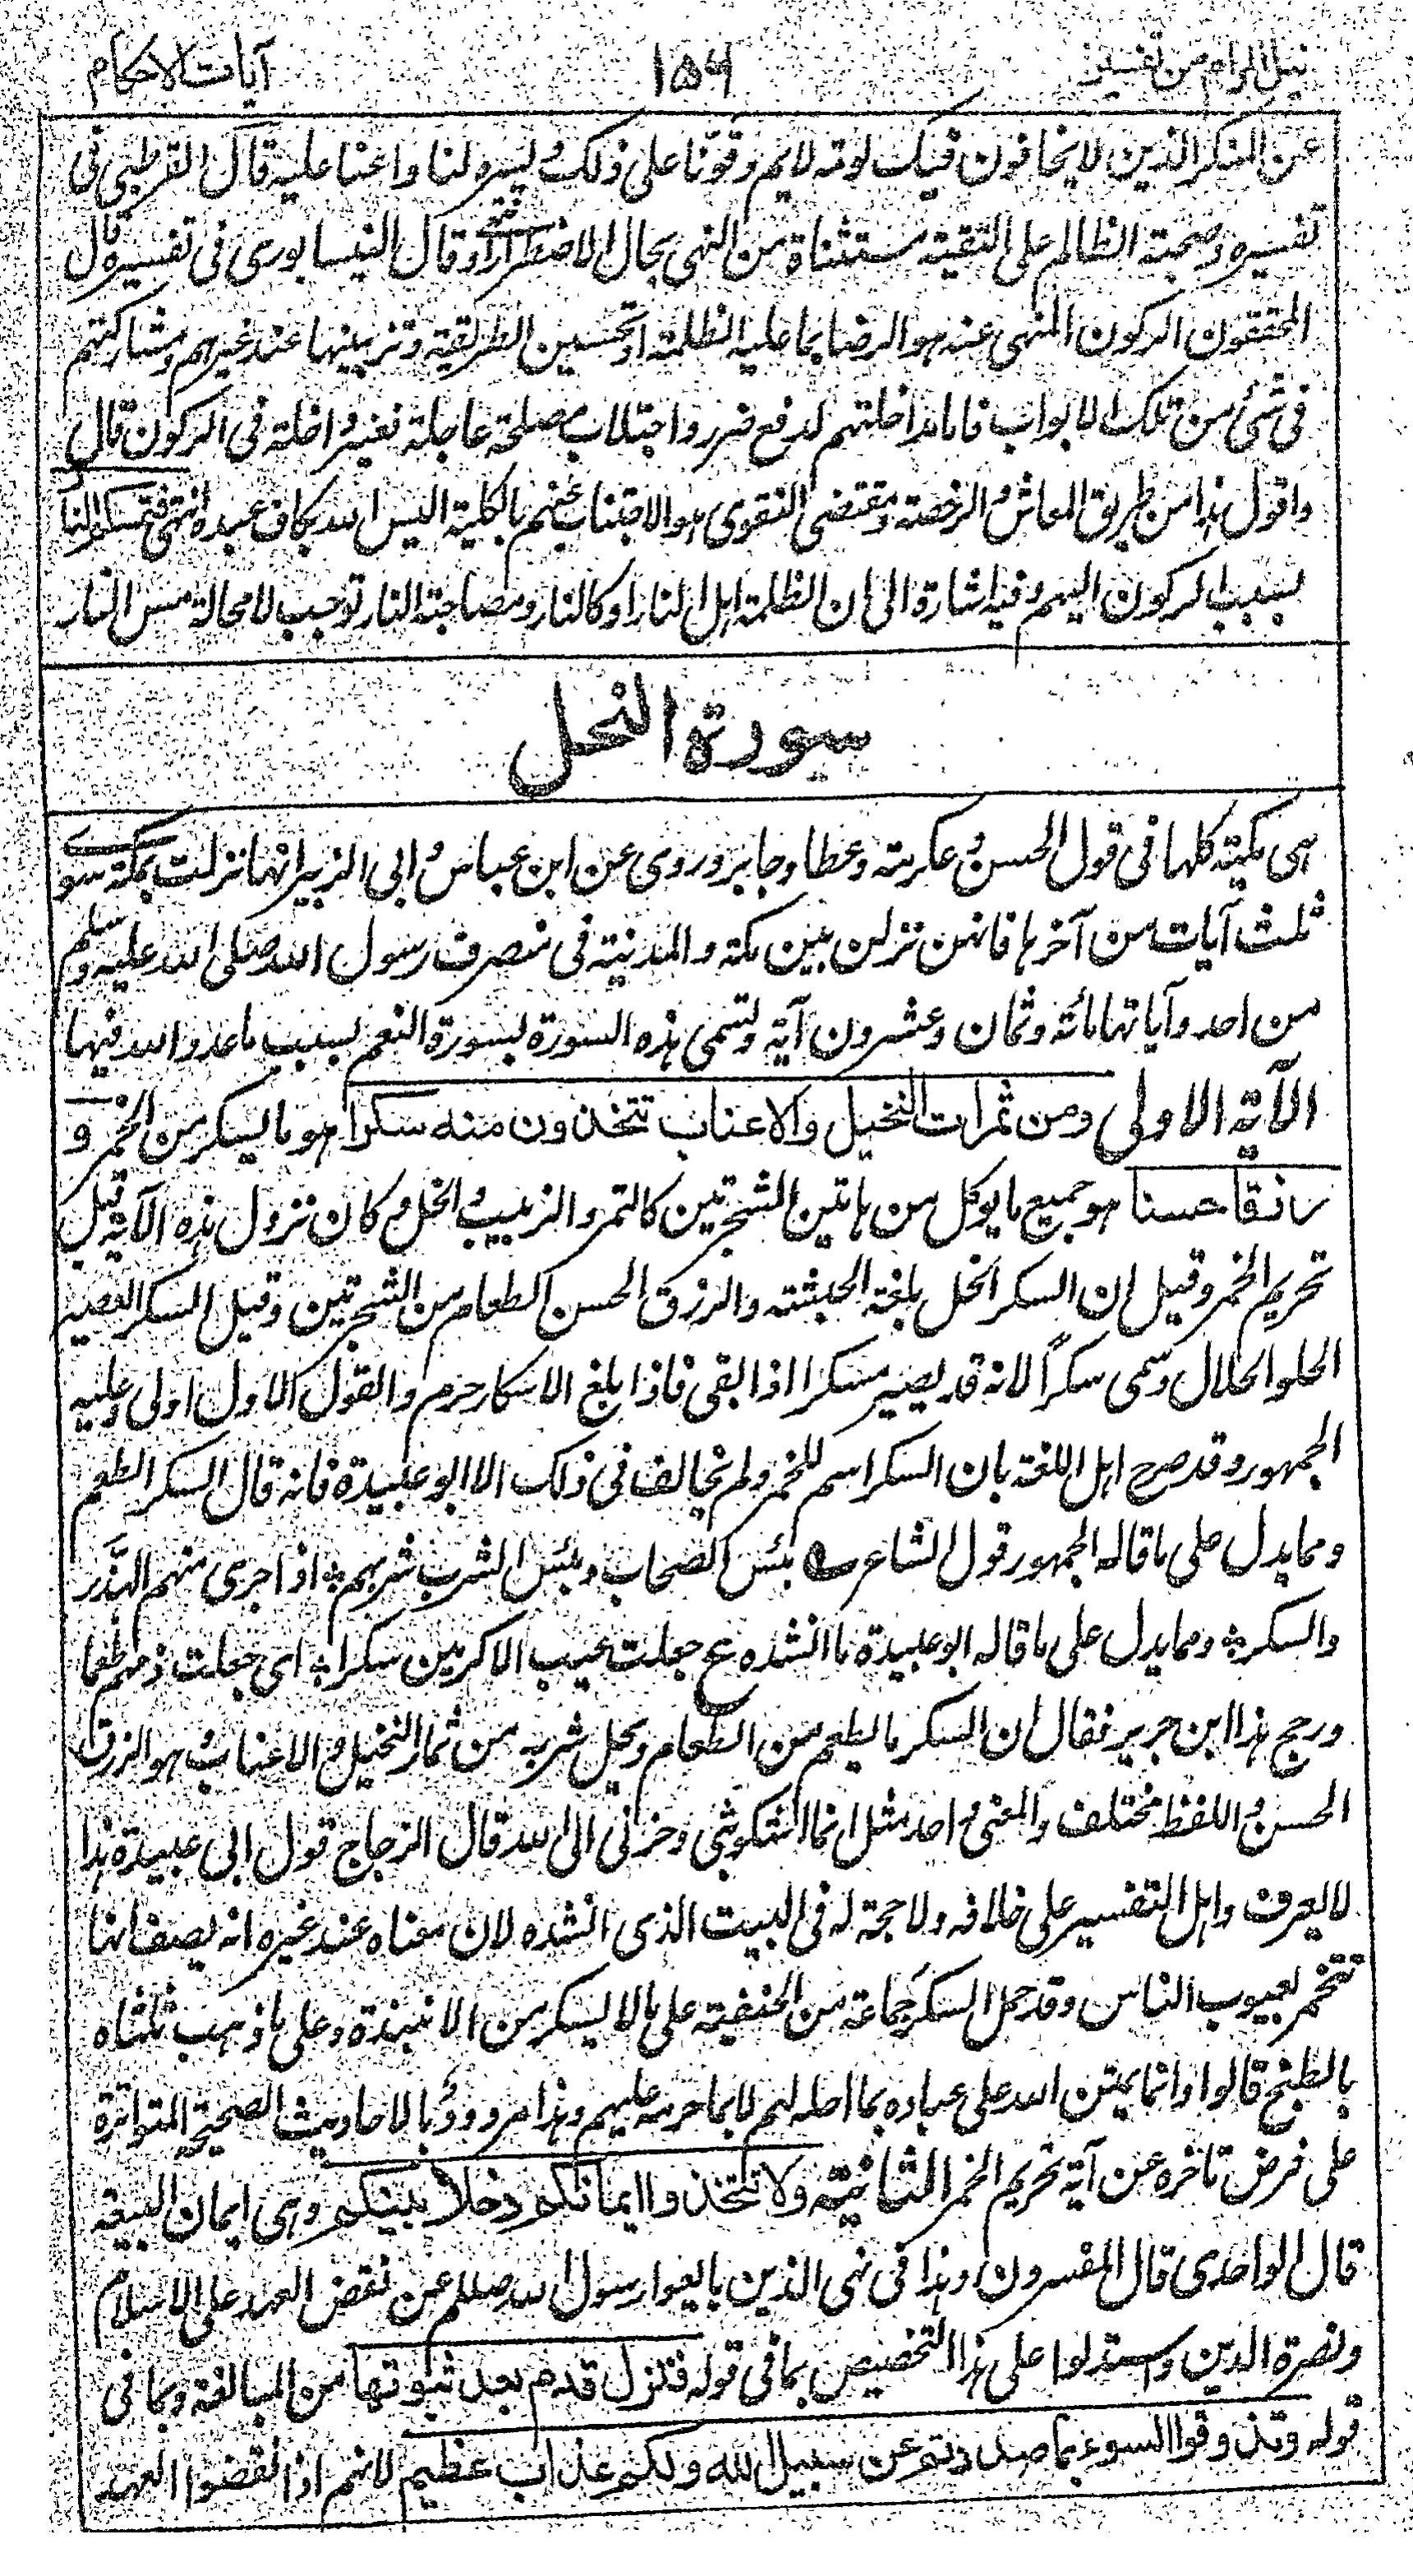 نيل المرام من تفسير ١٥٦ آيات الاحكام
عن المنكر الذين لا يخافون فيك لومة لايم وقونا على ذلك ويسره لنا واعنا عليه قال القرطبى فى
تفسيره وصحبة الظالم على التقية مستثناة من النهى بحال الاضطرار وقال النيسابورى فى تفسيره قال
المحققون الركون المنهى عنه هو الرضا بما عليه الظلمة او تحسين الطريقة وتزيينها عند غيرهم ومشاركتهم
فى شئ من تلك الابواب فاما مداخلتهم لدفع ضرر واجتلاب مصلحة عاجلة فغير داخلة فى الركون قال
واقول هذا من طريق المعاش والرخصة ومقتضى التقوى هو الاجتناب عنهم بالكلية اليس الله بكاف عبده انتهى فتمسكم النار
بسبب الركون اليهم وفيه اشارة الى ان الظلمة اهل النار او كالنار ومصاحبة النار توجب لا محالة مس النار
سورة النحل
هى مكية كلها فى قول الحسن وعكرمة وعطا وجابر وروى عن ابن عباس وابى الزبير انها نزلت بمكة سوى
ثلث آيات من آخرها فانهن نزلن بين مكة والمدينة فى منصرف رسول الله صلى الله عليه وسلم
من احد وآياتها مائة وثمان وعشرون آية وتسمى هذه السورة بسورة النعم بسبب ما عدد الله فيها
الآية الاولى ومن ثمرات النخيل والاعناب تتخذون منه سكرا هو ما يسكر من الخمر و
رزقا حسنا هو جميع ما يوكل من هاتين الشجرتين كالتمر والزبيب والخل وكان نزول هذه الآية قبل
تحريم الخمر وقيل ان السكر الخل بلغة الحبشة والرزق الحسن الطعام من الشجرتين وقيل السكر العصير
الحلو الحلال وسمى سكراً لانه قد يصير مسكرا اذا بقى فاذا بلغ الاسكار حرم والقول الاول اولى وعليه
الجمهور وقد صرح اهل اللغة بان السكر اسم للخمر ولم يخالف فى ذلك الا ابو عبيدة فانه قال السكر الطعم
ومما يدل على ما قاله الجمهور قول الشاعر ؎ بئس الصحاب وبئس الشرب شربهم ؛ اذا جرى منهم الهذر
والسكر ؛ ومما يدل على ما قاله ابو عبيدة ما انشده ع جعلت عيب الاكرمين سكرا ؛ اى جعلت ذمهم طعما
ورجح هذا ابن جرير فقال ان السكر ما يطعم من الطعام ويحل شربه من ثمار النخيل والاعناب وهو الرزق
الحسن واللفظ مختلف والمعنى واحد مثل انما اشكو بثى وحزنى الى الله قال الزجاج قول ابى عبيدة هذا
لا يعرف واهل التفسير على خلافه ولا حجة له فى البيت الذى انشده لان معناه عند غيره انه يصف انها
تتخمر بعيوب الناس وقد حمل السكر جماعة من الحنفية على ما لا يسكر من الانبذة وعلى ما ذهب ثلثاه
بالطبخ قالوا وانما يمتن الله على عباده بما احله لهم لا بما حرمه عليهم وهذا مردود بالاحاديث الصحيحة المتواترة
على فرض تاخره عن آية تحريم الخمر الثانية ولا تتخذوا ايمانكم دخلا بينكم وهى ايمان البيعة
قال الواحدى قال المفسرون وهذا فى نهى الذين بايعوا رسول الله صللم عن نقض العهد على الاسلام
ونصرة الدين واستدلوا على هذا التخصيص بما فى قوله فتزل قدم بعد ثبوتها من المبالغة وبما فى
قوله وتذوقوا السوء بما صددتم عن سبيل الله ولكم عذاب عظيم لانهم اذا نقضوا العهد